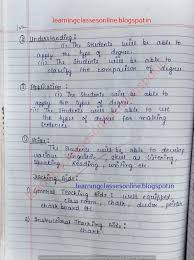 learningclassesonline.blogspot.in
② Understanding:
(i) The students will be able to
apply the type of degree.
(ii) The students will be able to
classify the comparison of degree.
③ Application:
(i) The students will be able to
apply the types of degree.
(ii) The students will be able to use
the types of degree for making
sentences.
④ Skill:
The students will be able to develop
various linguistic skill as listening,
speaking, reading, writing etc.
Teaching Aids:
1) General Teaching Aids: well equipped
class room, chalk, duster, pointer
chalk board etc.
learningclassesonline.blogspot.in
2) Instructional Teaching Aids:
chart